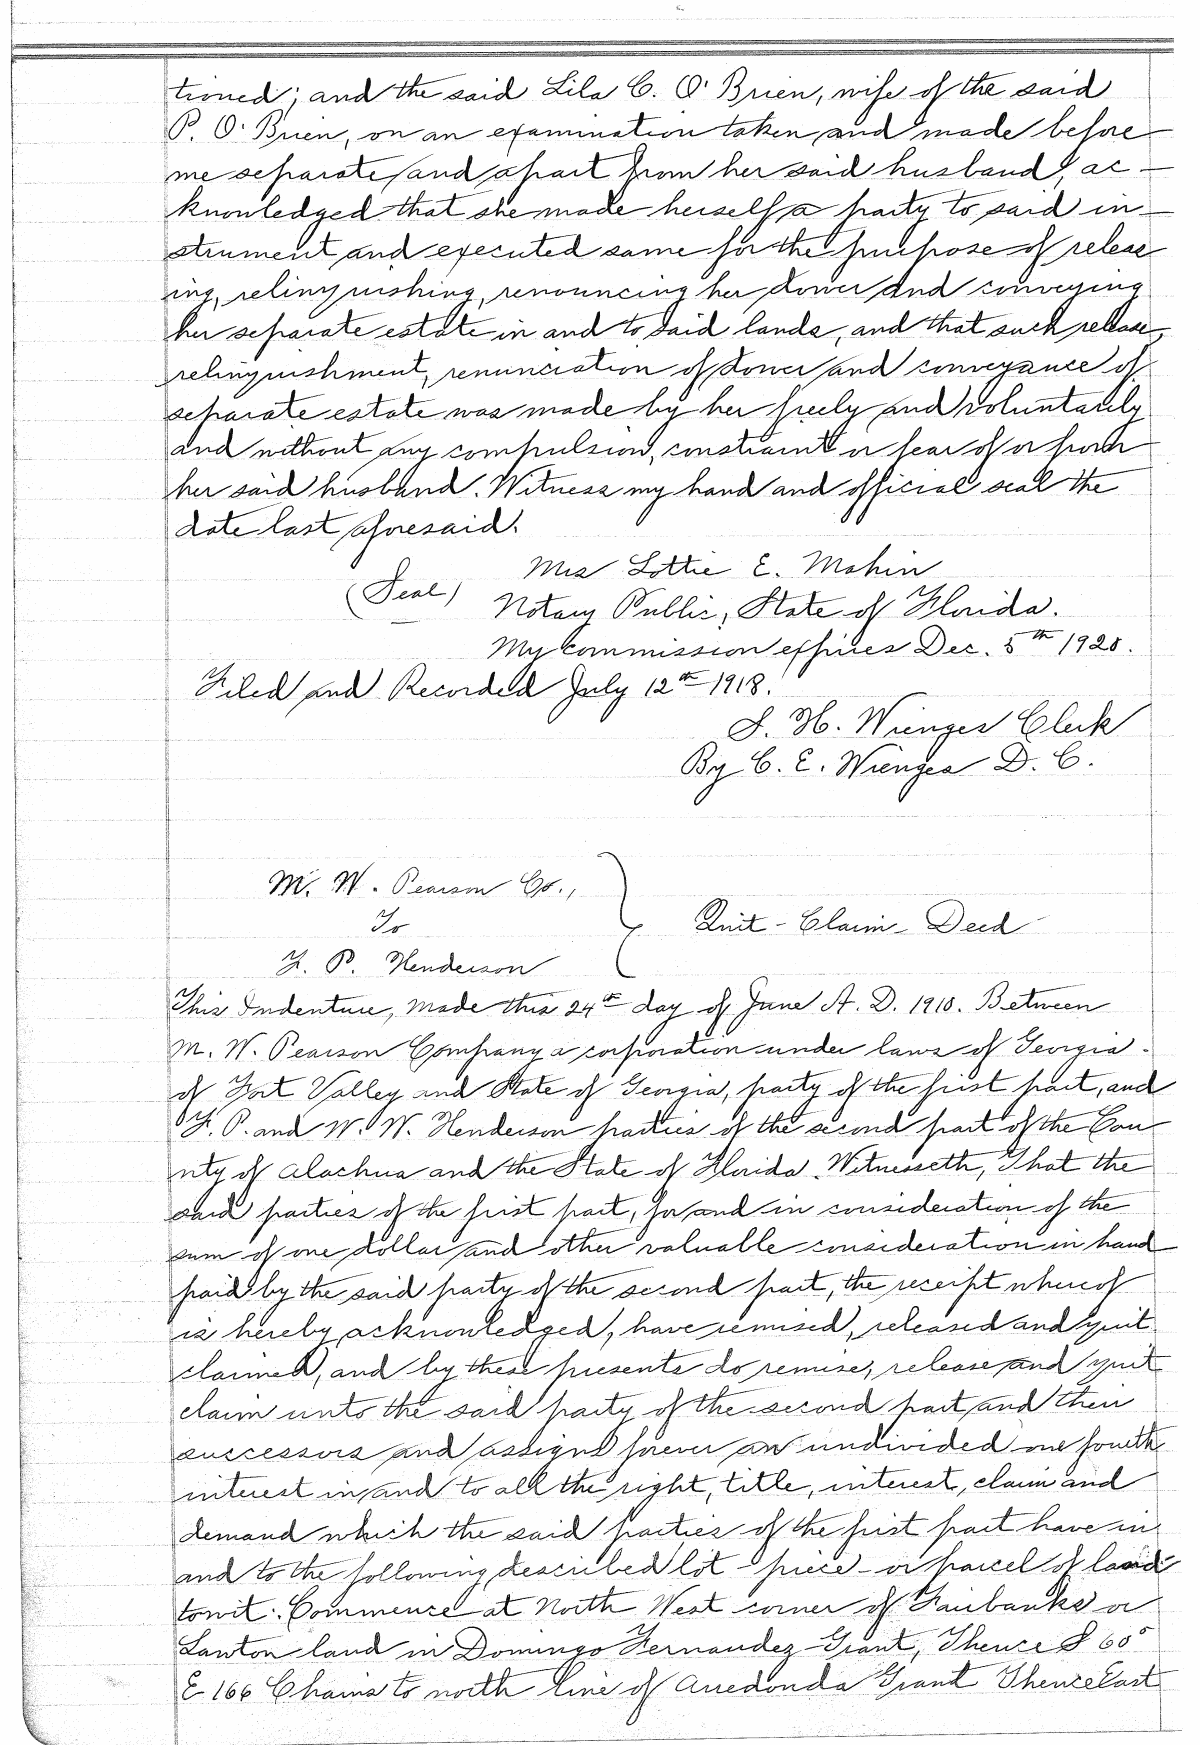 tioned; and the said Lila C. O'Brien, wife of the said
P. O'Brien, on an examination taken and made before
me separate and apart from her said husband, ac-
knowledged that she made herself a party to said in-
strument and executed same for the purpose of releas
ing, relinquishing, renouncing her dower and conveying
her separate estate in and to said lands, and that such release,
relinquishment, renunciation of dower and conveyance of
separate estate was made by her freely and voluntarily
and without any compulsion, constraint or fear of or from
her said husband. Witness my hand and official seal the
date last aforesaid.
Mrs Lottie E. Mahin
(Seal) Notary Public, State of Florida.
My commission expires Dec. 5th 1920.
Filed and Recorded July 12th 1918.
S. H. Wienges Clerk
By C. E. Wienges D. C.
M. W. Pearson Co.,
To
Quit-Claim-Deed
F. P. Henderson
This Indenture, Made this 24th day of June A. D. 1910. Between
M. W. Pearson Company a corporation under laws of Georgia.
of Fort Valley and State of Georgia, party of the first part, and
F. P. and W. W. Henderson parties of the second part of the Cou
nty of Alachua and the State of Florida. Witnesseth, That the
said parties of the first part, for and in consideration of the
sum of one dollar and other valuable consideration in hand
paid by the said party of the second part, the receipt whereof
is hereby acknowledged, have remised, released and quit
claimed, and by these presents do remise, release and quit
claim unto the said party of the second part and their
successors and assigns forever an undivided one fourth
interest in and to all the right, title, interest, claim and
demand which the said parties of the first part have in
and to the following described lot - piece - or parcel of land
towit: Commence at North West corner of Fairbanks or
Lanton land in Domingo Fernandez Grant, Thence S 60°
E 166 Chains to north line of Arredonda Grant Thence East